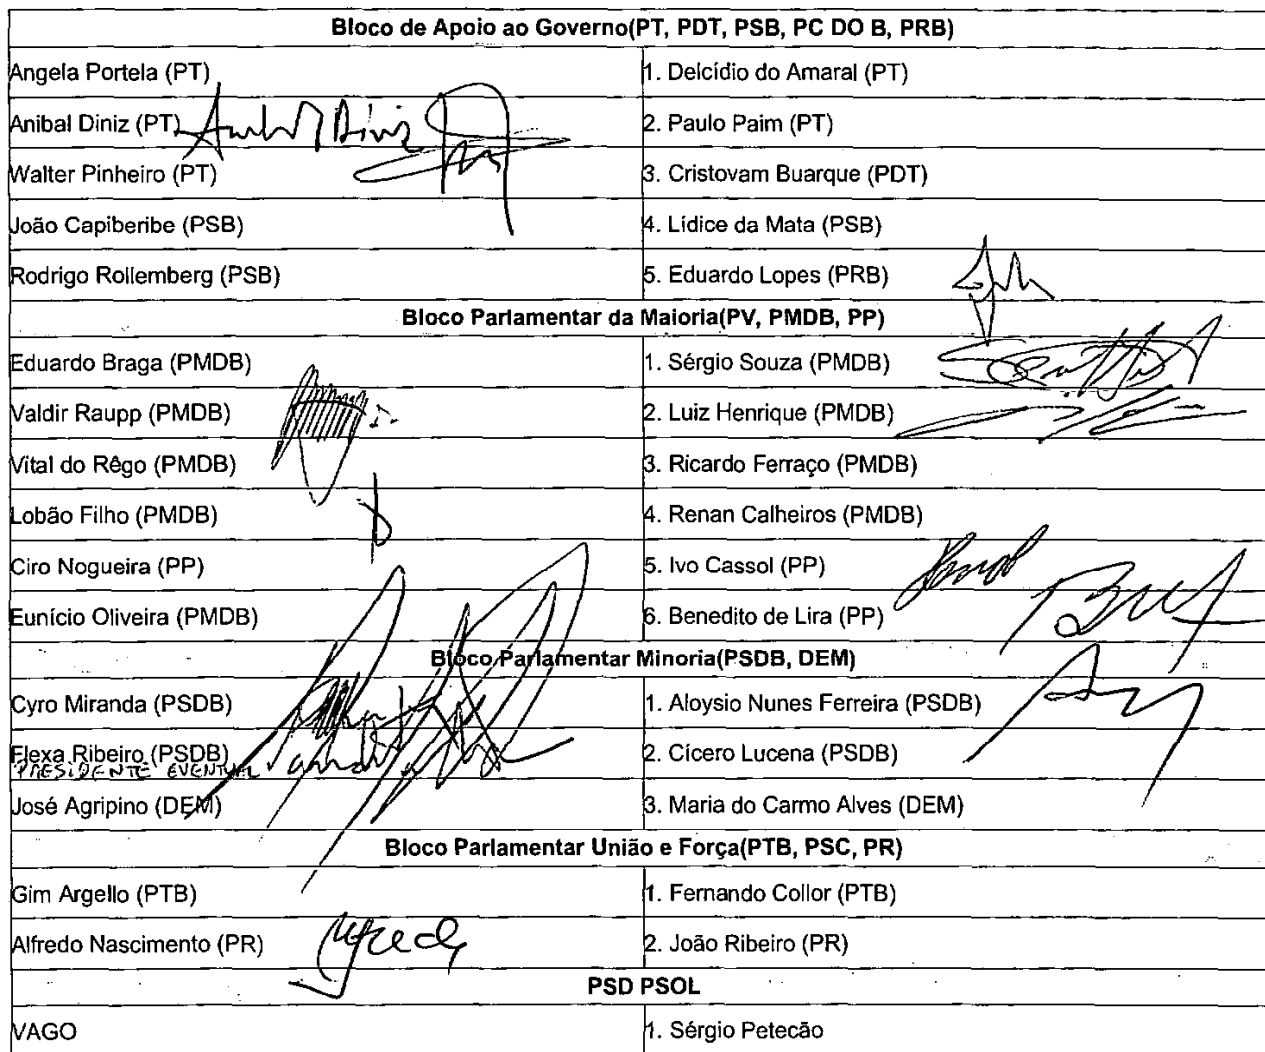 Bloco de Apoio ao Governo(PT, PDT, PSB, PC DO B, PRB)
Angela Portela (PT)
1. Delcídio do Amaral (PT)
Anibal Diniz (PT) Anibal Diniz
2. Paulo Paim (PT)
Walter Pinheiro (PT)
3. Cristovam Buarque (PDT)
João Capiberibe (PSB)
4. Lídice da Mata (PSB)
Rodrigo Rollemberg (PSB)
5. Eduardo Lopes (PRB)
Bloco Parlamentar da Maioria(PV, PMDB, PP)
Eduardo Braga (PMDB)
1. Sérgio Souza (PMDB)
Valdir Raupp (PMDB)
2. Luiz Henrique (PMDB)
Vital do Rêgo (PMDB)
3. Ricardo Ferraço (PMDB)
Lobão Filho (PMDB)
4. Renan Calheiros (PMDB)
Ciro Nogueira (PP)
5. Ivo Cassol (PP)
Eunício Oliveira (PMDB)
6. Benedito de Lira (PP)
Bloco Parlamentar Minoria(PSDB, DEM)
Cyro Miranda (PSDB)
1. Aloysio Nunes Ferreira (PSDB)
Flexa Ribeiro (PSDB)
2. Cícero Lucena (PSDB)
PRESIDENTE EVENTUAL
José Agripino (DEM)
3. Maria do Carmo Alves (DEM)
Bloco Parlamentar União e Força(PTB, PSC, PR)
Gim Argello (PTB)
1. Fernando Collor (PTB)
Alfredo Nascimento (PR)
2. João Ribeiro (PR)
PSD PSOL
VAGO
1. Sérgio Petecão